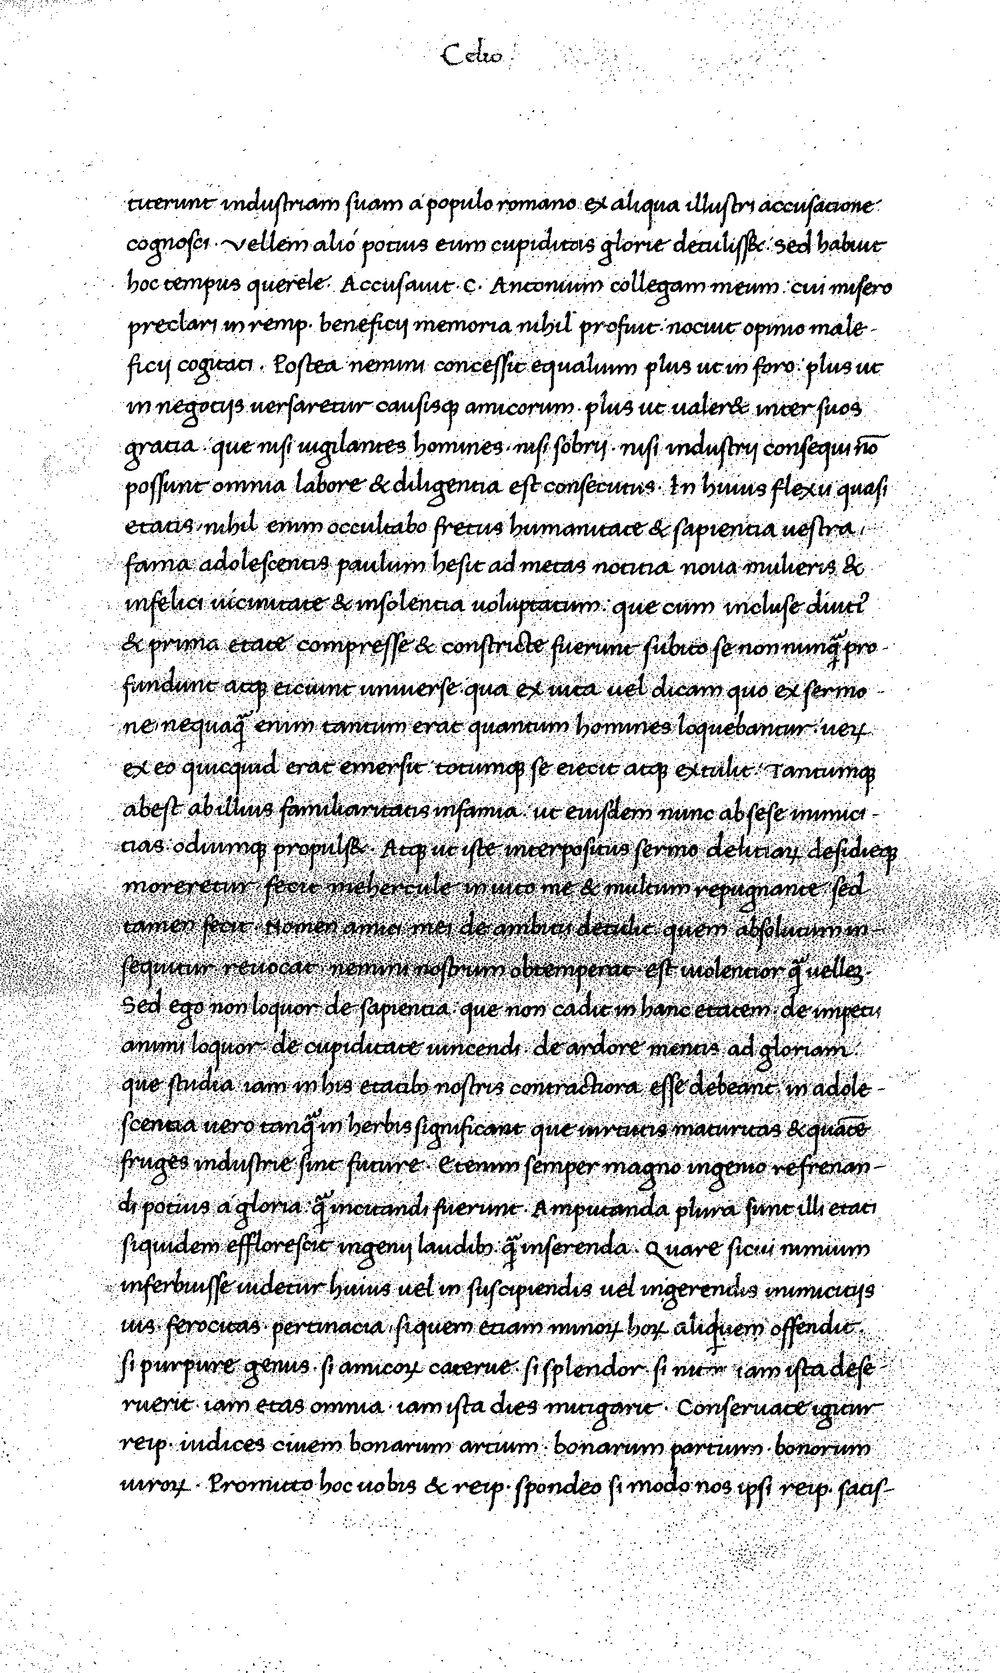 Celio
titerunt industriam suam a populo romano ex aliqua illustri accusatione
cognosci. vellem alio potius eum cupiditas glorie detuliss&. Sed habuit
hoc tempus querele. Accusauit. C. Antonium collegam meum: cui misero
preclari in remp. beneficij memoria nihil profuit: nocuit opinio male-
ficij cogitati. Postea nemini concessit equalium plus ut in foro: plus ut
in negotijs uersaretur causisq̃ amicorum. plus ut ualer& inter suos
gratia. que nisi uigilantes homines. nisi sobrij. nisi industrij consequi nō
possunt omnia labore & diligentia est consecutus. In huius flexu quasi
etatis. nihil enim occultabo fretus humanitate & sapientia uestra.
fama adolescentis paulum hesit ad metas notitia noua mulieris &
infelici uicinitate & insolentia uoluptatum: que cum incluse diuti᾽
& prima etate compresse & constricte fuerunt subito se non nunq̃ pro-
fundunt atq̃ eiciunt uniuerse. qua ex uita uel dicam quo ex sermo-
ne. nequaq̃ enim tantum erat quantum homines loquebantur. ueꝝ
ex eo quicquid erat emersit totumq̃ se eiecit atq̃ extulit. Tantumq̃
abest ab illius familiaritatis infamia. ut eiusdem nunc ab sese inimici-
tias odiumq̃ propuls&. Atq̃ ut iste interpositus sermo delitiaꝝ desidieq̃
moreretur. fecit mehercule inuito me & multum repugnante. sed
tamen fecit. Nomen amici mei de ambitu detulit. quem absolutum in-
sequitur reuocat. nemini nostrum obtemperat. est uiolentior q̃ uelleꝫ.
Sed ego non loquor de sapientia. que non cadit in hanc etatem. de impetu
animi loquor. de cupiditate uincendi. de ardore mentis ad gloriam.
que studia iam in his etatibꝫ nostris contractiora esse debeant. in adole-
scentia uero tanq̃ in herbis significant que uirtutis maturitas & quāte
fruges industrie sint future. Etenim semper magno ingenio refrenan-
di potius a gloria. q̃ incitandi fuerunt. Amputanda plura sunt illi etati
siquidem efflorescit ingenij laudibꝫ. q̃ inserenda. Quare sicui nimium
inferbuisse uidetur huius uel in suscipiendis uel ingerendis inimicitijs
uis. ferocitas. pertinacia. si quem etiam minoꝝ hoꝝ aliquem offendit.
si purpure genus. si amicoꝝ caterue. si splendor. si iam ista dese
ruerit. iam etas omnia. iam ista dies mitigarit. Conseruate igitur
reip. iudices ciuem bonarum artium. bonarum partium. bonorum
uiroꝝ. Promitto hoc uobis & reip. spondeo si modo nos ipsi reip. satis-